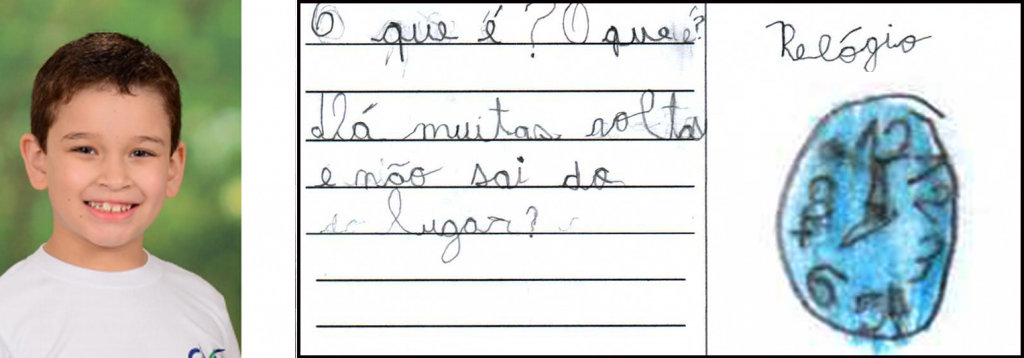 O que é? O que é?
dá muitas voltas
e não sai do
lugar?
Relógio
12
1
2
3
4
5
6
7
8